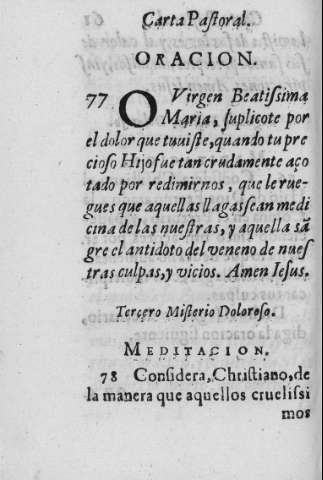 Carta Pastoral.
ORACION.
77 O Virgen Beatissima
Maria, suplicote por
el dolor que tuuiste, quando tu pre
cioso Hijo fue tan crudamente aço
tado por redimirnos, que le rue-
gues que aquellas llagas sean medi
cina de las nuestras, y aquella sã
gre el antidoto del veneno de nues
tras culpas, y vicios. Amen Iesus.
Tercero Misterio Doloroso.
MEDITACION.
78 Considera, Christiano, de
la manera que aquellos cruelissi
mos